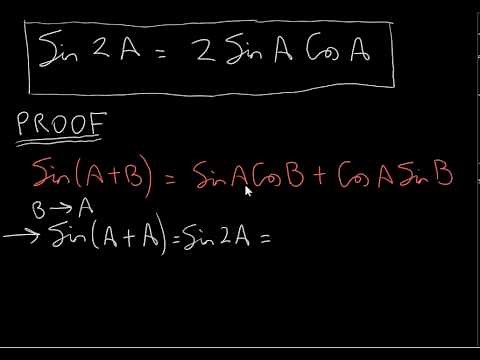 Sin 2A = 2 Sin A Cos A
PROOF
Sin(A+B) = Sin A Cos B + Cos A Sin B
B → A
→ Sin(A + A) = Sin 2A =